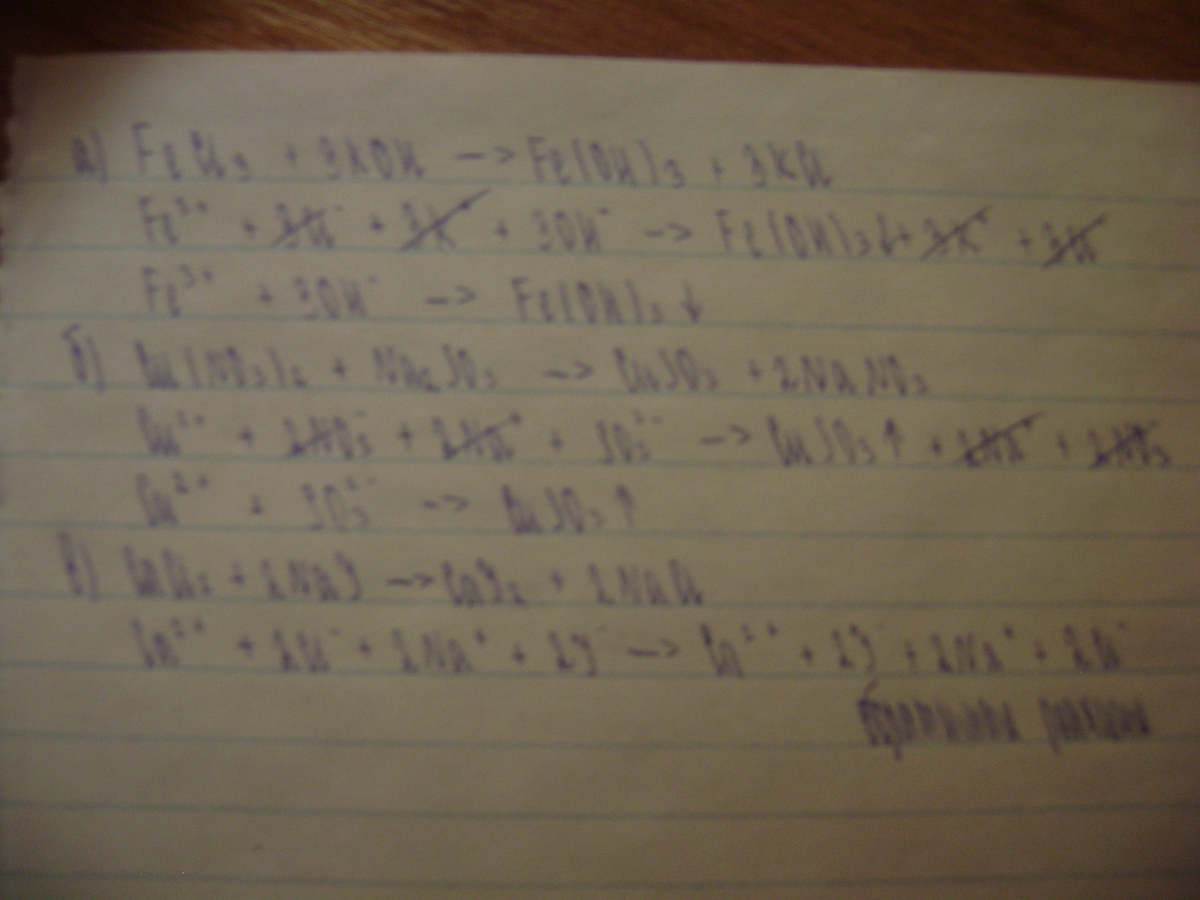 а) FeCl₃ + 3KOH –> Fe(OH)₃ + 3KCl
Fe³⁺ + 3Cl⁻ + 3K⁺ + 3OH⁻ –> Fe(OH)₃↓ + 3K⁺ + 3Cl⁻
Fe³⁺ + 3OH⁻ –> Fe(OH)₃↓
б) Cu(NO₃)₂ + Na₂SO₃ –> CuSO₃ + 2NaNO₃
Cu²⁺ + 2NO₃⁻ + 2Na⁺ + SO₃²⁻ –> CuSO₃↑ + 2Na⁺ + 2NO₃⁻
Cu²⁺ + SO₃²⁻ –> CuSO₃↑
в) CaCl₂ + 2NaJ –> CaJ₂ + 2NaCl
Ca²⁺ + 2Cl⁻ + 2Na⁺ + 2J⁻ –> Ca²⁺ + 2J⁻ + 2Na⁺ + 2Cl⁻
Обратимая реакция